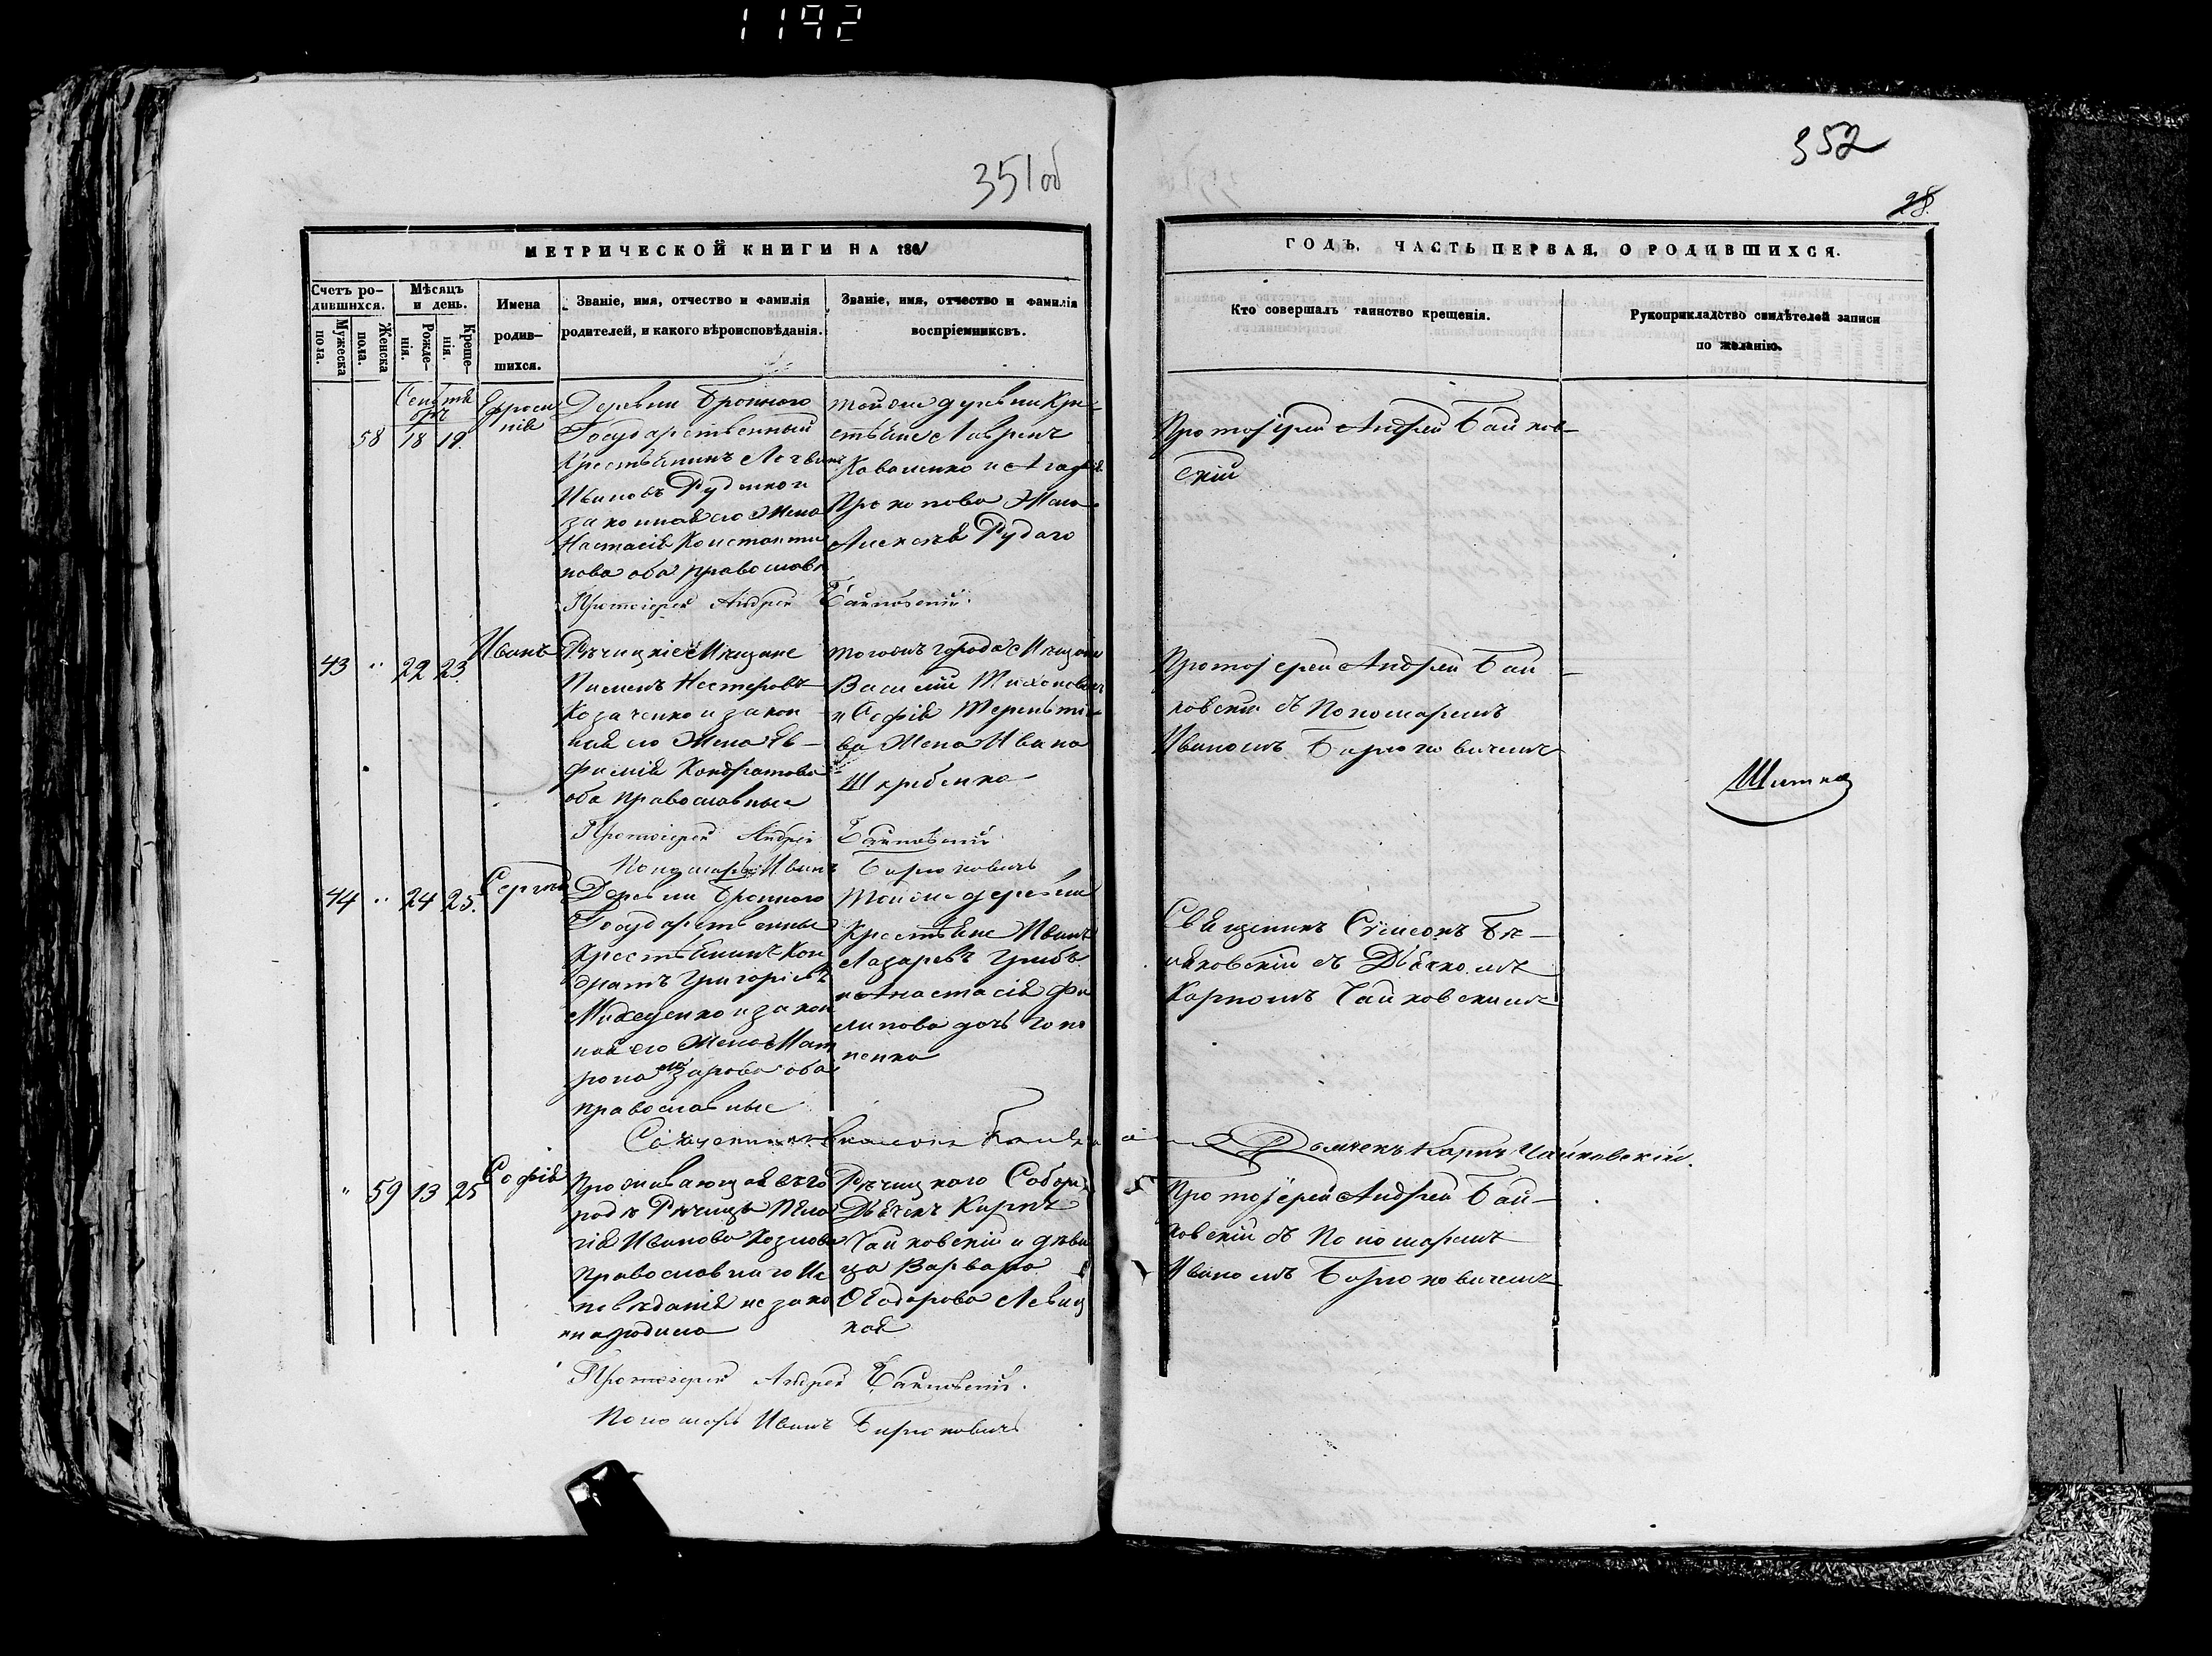 1192
351об
352
28.
МЕТРИЧЕСКОЙ КНИГИ НА 1861
ГОДЪ, ЧАСТЬ ПЕРВАЯ, О РОДИВШИХСЯ.
Счетъ ро-
дившихся.
Мужеска
пола.
Женска
пола.
Мѣсяцъ
и день.
Рожде-
нія.
Креще-
нія.
Имена
родив-
шихся.
Званіе, имя, отчество и фамилія
родителей, и какого вѣроисповѣданія.
Званіе, имя, отчество и фамилія
воспріемниковъ.
Кто совершалъ таинство крещенія.
Рукоприкладство свидѣтелей записи
по желанію.
Сентя
брь
58 18 19.
Ефроси
нія
Деревни Бронного
Государственный
Крестьянинъ
Ивановъ Рудинко и
законная его Жена
Настасія Константи
нова оба православн
тойже деревни Кре-
стьяне Лавринъ
Коваленко и Агафія
Прокопова Жена
Алексѣя Рудаго
Протоіерей Андрей Байков-
скій
Протоіерей Андрей Байковскій.
43 " 22 23.
Иванъ
Рѣчицкіе Мѣщане
Пименъ Нестеровъ
Козаченко и закон-
ная его Жена Ев-
фимія Кондратова
оба православные
тогожъ города Мѣщане
Василій Тихоновичъ
и Софія Терентіе-
ва Жена Ивана
Шкрибенка
Протоіерей Андрей Бай-
ковскій съ Пономаремъ
Иваномъ Бирюковичемъ
Протоіерей Андрей Байковскій
Пономарь Иванъ Бирюковичъ
44 " 24 25.
Сергѣй
Деревни Бронного
Государственные
Крестьянинъ Кон
дратъ Григорьевъ
Михеенко и закон
ная его Жена Мат
рона Лазарова оба
православные
Тойже деревни
Крестьяне Иванъ
Лазаревъ Грибъ
и Анастасія Фи
липова дочь
Священникъ Сѵмеонъ
съ Дьячкомъ
Карпомъ Чайковскимъ
Священникъ
Дьячекъ Карпъ Чайковскій.
" 59 13 25
Софія
Проживающая въ го
родѣ Рѣчицѣ Пела
гія Иванова Козлова
Православнаго Ис
повѣданія незако
нно родила
Рѣчицкаго Собора
Дьячекъ Карпъ
Чайковскій и дѣви
ца Варвара
Ѳеодорова Левиц
кая
Протоіерей Андрей Бай-
ковскій съ Пономаремъ
Иваномъ Бирюковичемъ
Протоіерей Андрей Байковскій.
Пономарь Иванъ Бирюковичъ